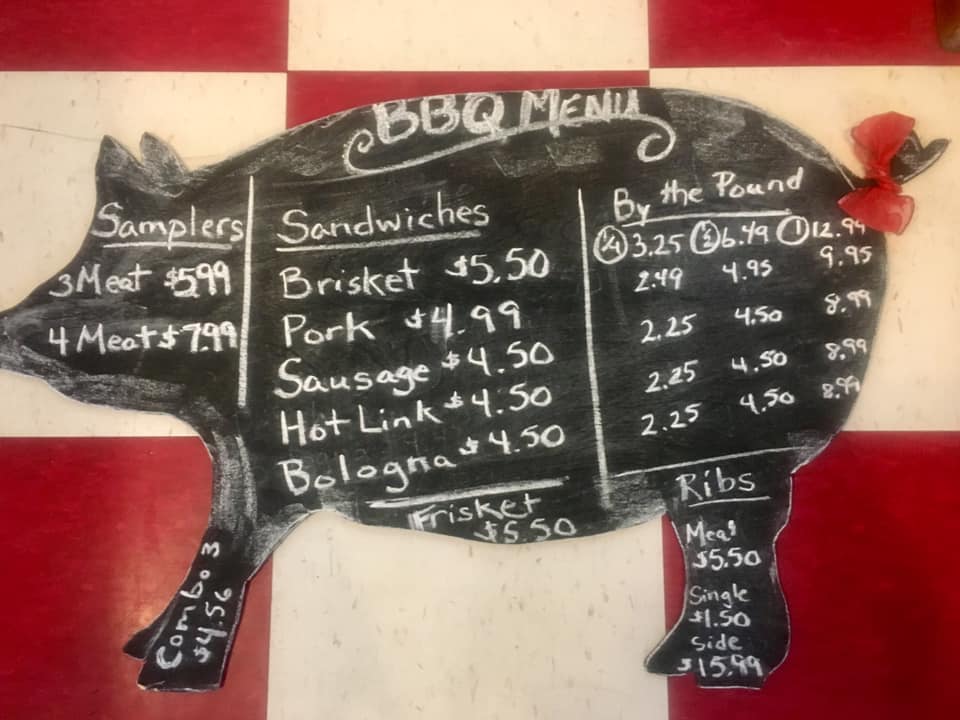 BBQ MENU
Samplers
3 Meat $5.99
4 Meat $7.99
Sandwiches
Brisket $5.50
Pork $4.99
Sausage $4.50
Hot Link $4.50
Bologna $4.50
Frisket
$5.50
By the Pound
1/4 3.25 1/2 6.49 1 12.99
2.49 4.95 9.95
2.25 4.50 8.99
2.25 4.50 8.99
2.25 4.50 8.99
Ribs
Meal
$5.50
Single
$1.50
Side
$15.99
Combo 3
$4.56